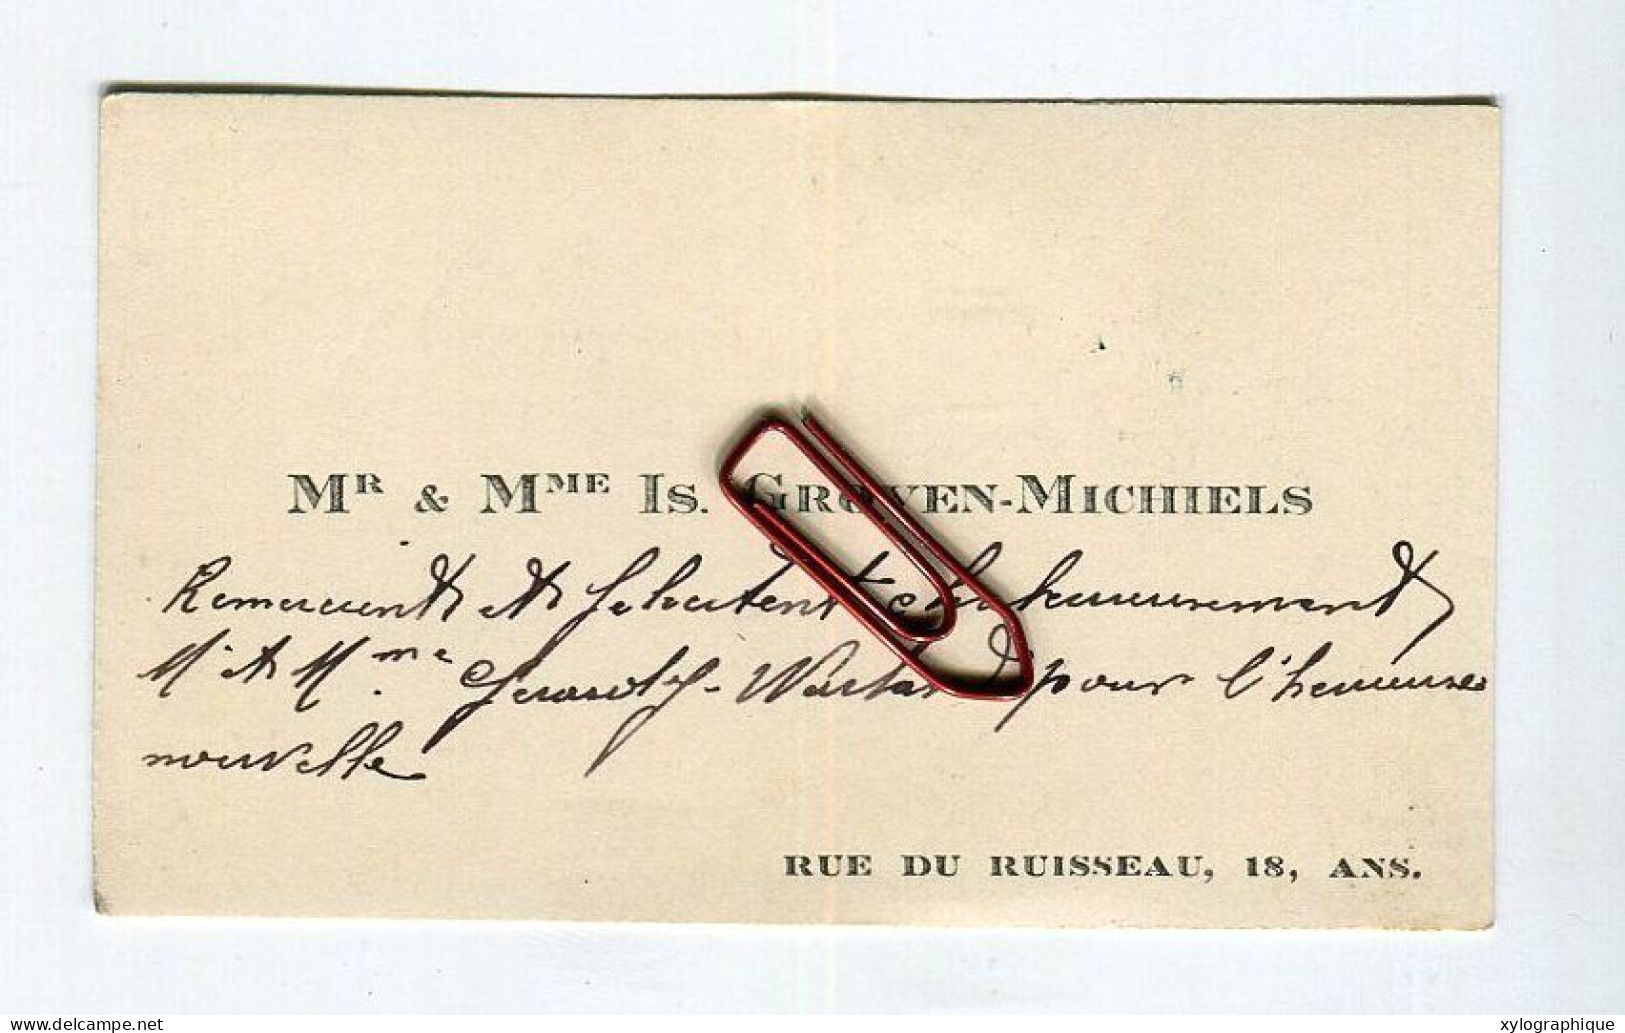 Mr & Mme Is. Groven-Michiels
Remercient et félicitent chaleureusement
Mr et Mme Gérardy- pour l'heureuse
nouvelle
RUE DU RUISSEAU, 18, ANS.
www.delcampe.net
xylographique